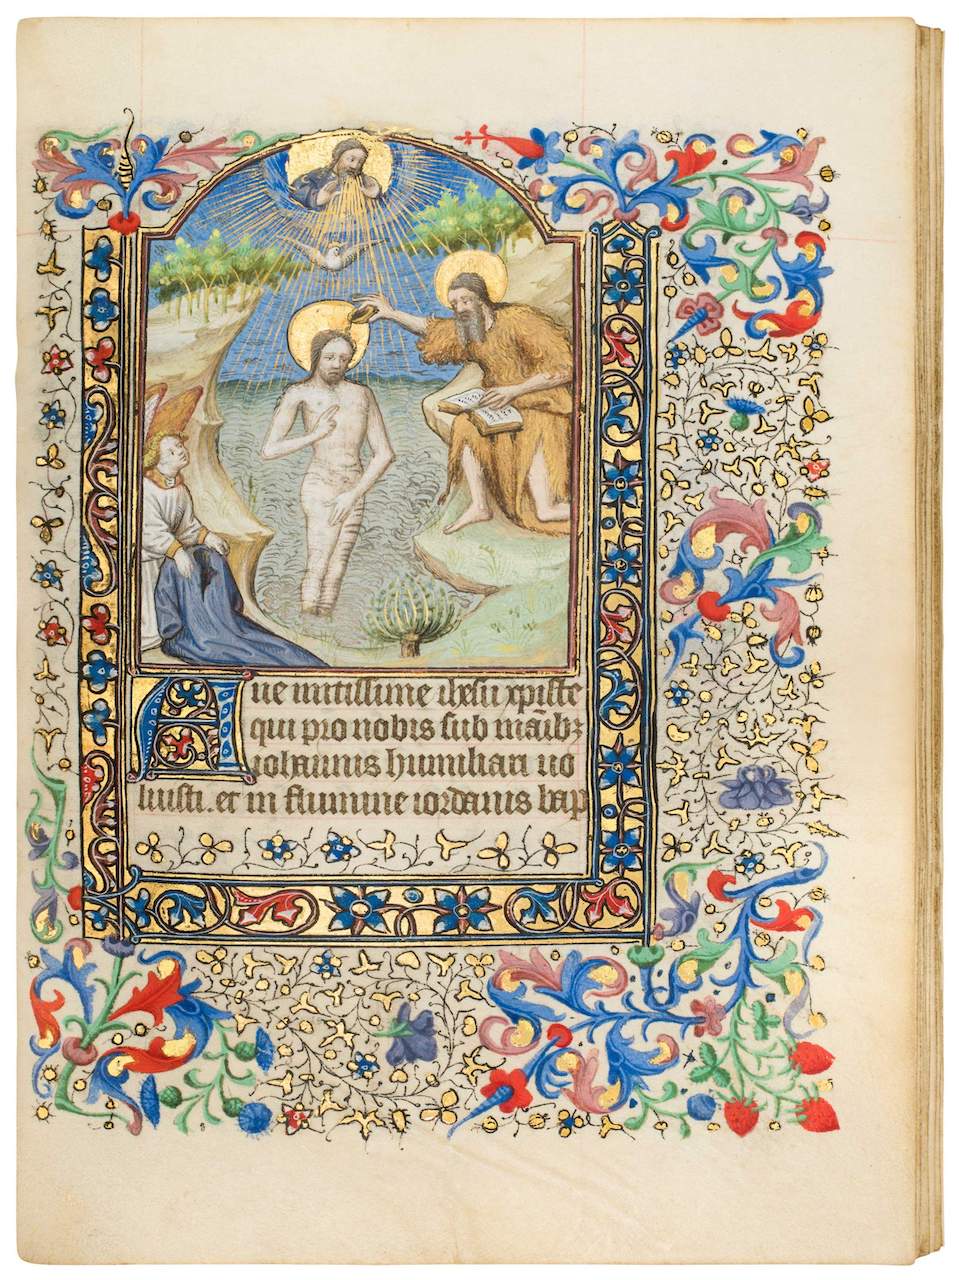 Aue mitissime ihesu xpiste
qui pro nobis sub mãibꝫ
iohannis humiliari uo
luisti. et in flumine iordanis bap